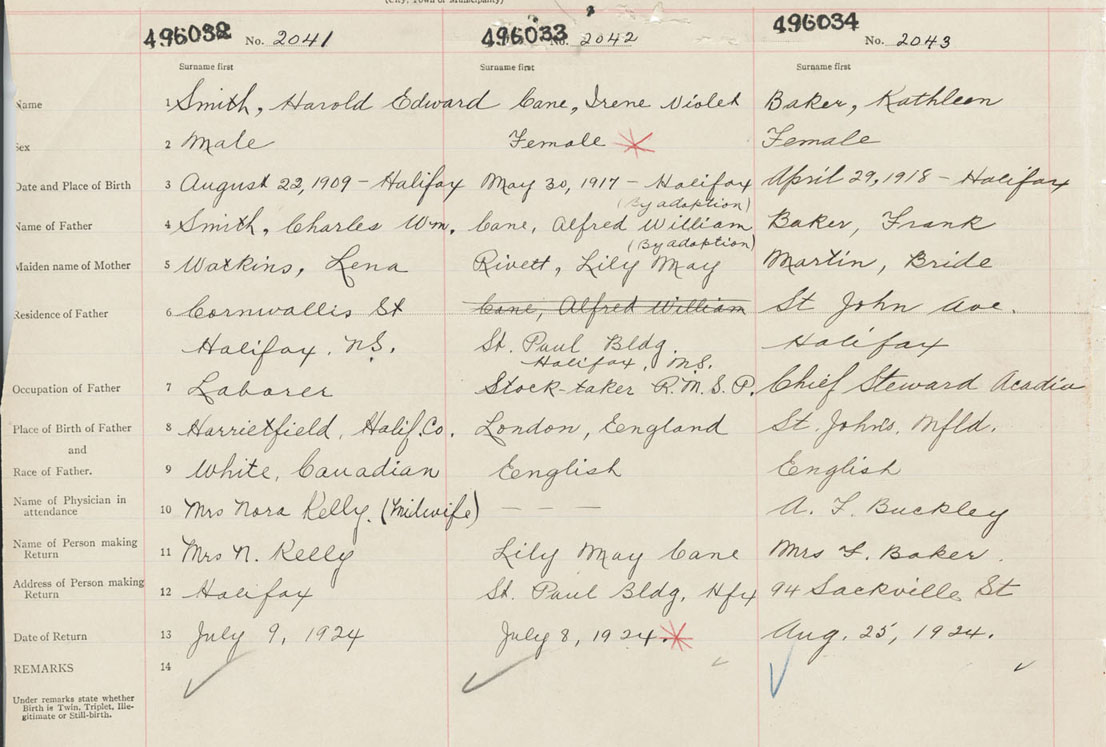 (City, Town or Municipality)
496032 No. 2041 496033 No. 2042 496034 No. 2043
Surname first Surname first Surname first
Name 1 Smith, Harold Edward Cane, Irene Violet Baker, Kathleen
Sex 2 Male Female Female
Date and Place of Birth 3 August 22, 1909 - Halifax May 30, 1917 - Halifax April 29, 1918 - Halifax
(By adoption)
Name of Father 4 Smith, Charles Wm. Cane, Alfred William Baker, Frank
(By adoption)
Maiden name of Mother 5 Watkins, Lena Rivett, Lily May Martin, Bride
Residence of Father 6 Cornwallis St Cane, Alfred William St John Ave.
Halifax. N.S. St. Paul Bldg. Halifax
Halifax, N.S.
Occupation of Father 7 Laborer Stock-taker R.M.S.P. Chief Steward Acadia
Place of Birth of Father 8 Harrietfield, Halif. Co. London, England St. John's, Nfld.
and
Race of Father. 9 White, Canadian English English
Name of Physician in
attendance 10 Mrs Nora Kelly. (Midwife) - - - A. F. Buckley
Name of Person making
Return 11 Mrs N. Kelly Lily May Cane Mrs F. Baker.
Address of Person making
Return 12 Halifax St. Paul Bldg, Hfx 94 Sackville St
Date of Return 13 July 9, 1924 July 8, 1924. Aug. 25, 1924.
REMARKS 14
Under remarks state whether
Birth is Twin, Triplet, Ille-
gitimate or Still-birth.